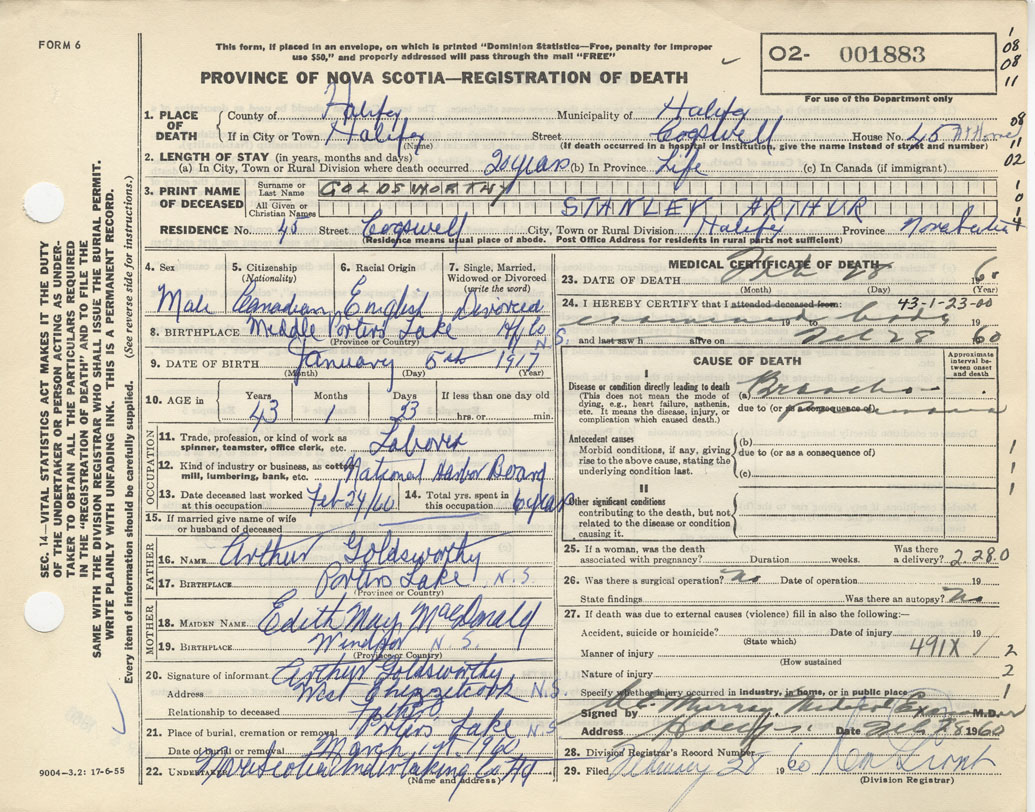 FORM 6
This form, if placed in an envelope, on which is printed "Dominion Statistics—Free, penalty for improper
use $50," and properly addressed will pass through the mail "FREE"
PROVINCE OF NOVA SCOTIA—REGISTRATION OF DEATH
02- 001883
For use of the Department only
1 08 08 11
08 11 02
1. PLACE OF DEATH
County of Halifax Municipality of Halifax
If in City or Town Halifax Street Cogswell House No. 45 At Home
(Name) (If death occurred in a hospital or institution, give the name instead of street and number)
2. LENGTH OF STAY (in years, months and days)
(a) In City, Town or Rural Division where death occurred 20 years (b) In Province Life (c) In Canada (if immigrant)
3. PRINT NAME OF DECEASED
Surname or Last Name GOLDSWORTHY
All Given or Christian Names STANLEY ARTHUR
RESIDENCE No. 45 Street Cogswell City, Town or Rural Division Halifax Province Nova Scotia
(Residence means usual place of abode. Post Office Address for residents in rural parts not sufficient)
4. Sex Male
5. Citizenship (Nationality) Canadian
6. Racial Origin English
7. Single, Married, Widowed or Divorced (write the word) Divorced
8. BIRTHPLACE Middle Porters Lake Hfx Co N.S.
(Province or Country)
9. DATE OF BIRTH January 5th 1917
(Month) (Day) (Year)
10. AGE in Years 43 Months 1 Days 23 If less than one day old hrs. or min.
OCCUPATION
11. Trade, profession, or kind of work as spinner, teamster, office clerk, etc. Laborer
12. Kind of industry or business, as cotton mill, lumbering, bank, etc. National Harbor Board
13. Date deceased last worked at this occupation Feb 24/60
14. Total yrs. spent in this occupation 6 years
15. If married give name of wife or husband of deceased
FATHER
16. NAME Arthur Goldsworthy
17. BIRTHPLACE Porters Lake N.S.
(Province or Country)
MOTHER
18. MAIDEN NAME Edith May MacDonald
19. BIRTHPLACE Windsor N.S.
(Province or Country)
20. Signature of informant Arthur Goldsworthy
Address West Chezzetcook N.S.
Relationship to deceased Father
21. Place of burial, cremation or removal Porters Lake N.S
Date of burial or removal March 1st. 1960
22. UNDERTAKER Nova Scotia Undertaking Co Ltd
(Name and address)
MEDICAL CERTIFICATE OF DEATH
23. DATE OF DEATH Feb 28 1960
(Month) (Day) (Year)
24. I HEREBY CERTIFY that I attended deceased from: 43-1-23-00
examined body 19 to 19
and last saw h alive on Feb 28 60
CAUSE OF DEATH
Approximate interval between onset and death
I
Disease or condition directly leading to death (a) Broncho-
(This does not mean the mode of dying, e.g., heart failure, asthenia, etc. It means the disease, injury, or complication which caused death.)
due to (or as a consequence of) pneumonia
Antecedent causes (b)
Morbid conditions, if any, giving rise to the above cause, stating the underlying condition last.
due to (or as a consequence of)
(c)
II
Other significant conditions
contributing to the death, but not related to the disease or condition causing it.
25. If a woman, was the death associated with pregnancy? Duration weeks. Was there a delivery? 2280
26. Was there a surgical operation? No Date of operation 19
State findings Was there an autopsy? No
27. If death was due to external causes (violence) fill in also the following:—
Accident, suicide or homicide? Date of injury 19
(State which)
Manner of injury 491X 1
(How sustained)
Nature of injury
Specify whether injury occurred in industry, in home, or in public place
Signed by Murray Medical Examiner M.D.
Address Halifax Date Feb 28 1960
28. Division Registrar's Record Number
29. Filed February 28 1960
(Division Registrar)
SEC. 14—VITAL STATISTICS ACT MAKES IT THE DUTY
OF THE UNDERTAKER OR PERSON ACTING AS UNDER-
TAKER TO OBTAIN ALL THE PARTICULARS REQUIRED
IN THE "REGISTRATION OF DEATH" AND TO FILE THE
SAME WITH THE DIVISION REGISTRAR WHO SHALL ISSUE THE BURIAL PERMIT.
WRITE PLAINLY WITH UNFADING INK. THIS IS A PERMANENT RECORD.
Every item of information should be carefully supplied. (See reverse side for instructions.)
9004—3.2: 17-6-55